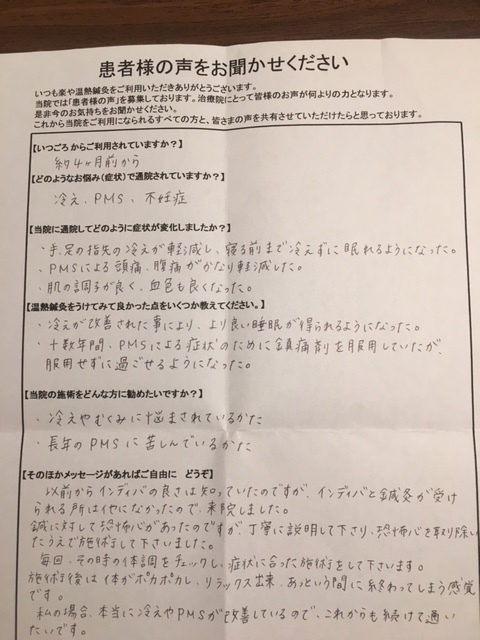 患者様の声をお聞かせください
いつも楽や温熱鍼灸をご利用いただきありがとうございます。
当院では「患者様の声」を募集しております。治療院にとって皆様のお声が何よりの力となります。
是非今のお気持ちをお聞かせください。
これから当院をご利用になられるすべての方と、皆さまの声を共有させていただけたらと思っております。
【いつごろからご利用されていますか？】
約4ヶ月前から
【どのようなお悩み（症状）で通院されていますか？】
冷え、PMS、不妊症
【当院に通院してどのように症状が変化しましたか？】
・手、足の指先の冷えが軽減し、寝る前まで冷えずに眠れるようになった。
・PMSによる頭痛、腹痛がかなり軽減した。
・肌の調子が良く、血色も良くなった。
【温熱鍼灸をうけてみて良かった点をいくつか教えてください。】
・冷えが改善された事により、より良い睡眠が得られるようになった。
・十数年間、PMSによる症状のために鎮痛剤を服用していたが、
服用せずに過ごせるようになった。
【当院の施術をどんな方に勧めたいですか？】
・冷えやむくみに悩まされているかた
・長年のPMSに苦しんでいるかた
【そのほかメッセージがあればご自由に　どうぞ】
以前からインディバの良さは知っていたのですが、インディバと鍼灸が受け
られる所は他になかったので、来院しました。
鍼に対して恐怖心があったのですが、丁寧に説明して下さり、恐怖心を取り除い
たうえで施術して下さいました。
毎回、その時の体調をチェックし、症状に合った施術をして下さいます。
施術後は体がポカポカし、リラックス出来、あっという間に終わってしまう感覚
です。
私の場合、本当に冷えやPMSが改善しているので、これからも続けて通い
たいです。